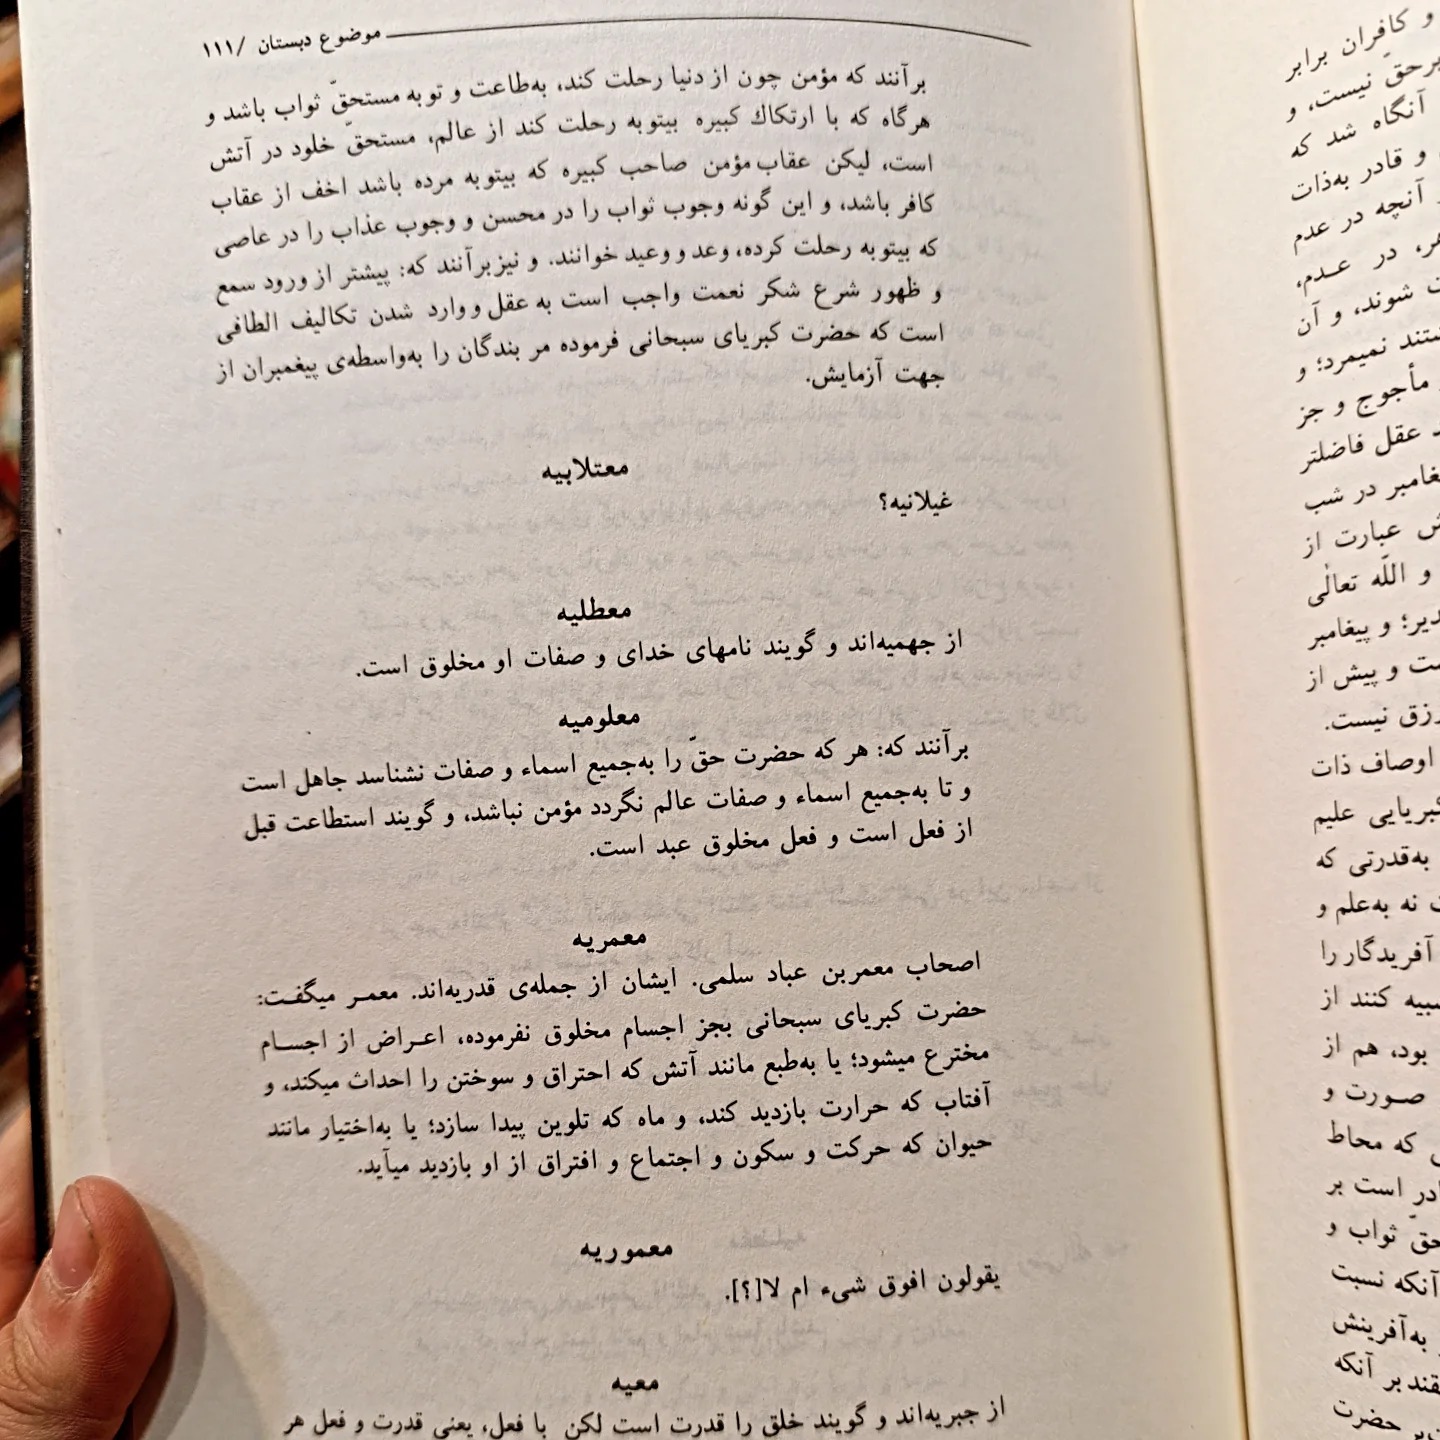 موضوع دبستان /۱۱۱
برآنند که مؤمن چون از دنیا رحلت کند، به‌طاعت و توبه مستحقّ ثواب باشد و
هرگاه که با ارتکاك کبیره بیتوبه رحلت کند از عالم، مستحقّ خلود در آتش
است، لیکن عقاب مؤمن صاحب کبیره که بیتوبه مرده باشد اخف از عقاب
کافر باشد، و این گونه وجوب ثواب را در محسن و وجوب عذاب را در عاصی
که بیتوبه رحلت کرده، وعد و وعید خوانند. و نیز برآنند که: پیشتر از ورود سمع
و ظهور شرع شکر نعمت واجب است به عقل و وارد شدن تکالیف الطافی
است که حضرت کبریای سبحانی فرموده مر بندگان را به‌واسطه‌ی پیغمبران از
جهت آزمایش.
معتلابیه
غیلانیه؟
معطلیه
از جهمیه‌اند و گویند نامهای خدای و صفات او مخلوق است.
معلومیه
برآنند که: هر که حضرت حقّ را به‌جمیع اسماء و صفات نشناسد جاهل است
و تا به‌جمیع اسماء و صفات عالم نگردد مؤمن نباشد، و گویند استطاعت قبل
از فعل است و فعل مخلوق عبد است.
معمریه
اصحاب معمربن عباد سلمی. ایشان از جمله‌ی قدریه‌اند. معمر میگفت:
حضرت کبریای سبحانی بجز اجسام مخلوق نفرموده، اعراض از اجسام
مخترع میشود؛ یا به‌طبع مانند آتش که احتراق و سوختن را احداث میکند، و
آفتاب که حرارت بازدید کند، و ماه که تلوین پیدا سازد؛ یا به‌اختیار مانند
حیوان که حرکت و سکون و اجتماع و افتراق از او بازدید میآید.
معموریه
یقولون افوق شیء ام لا[؟].
معیه
از جبریه‌اند و گویند خلق را قدرت است لکن با فعل، یعنی قدرت و فعل هر
و کافران برابر
برحقّ نیست، و
آنگاه شد که
و قادر به‌ذات
آنچه در عدم
در عدم،
شوند، و آن
نمیمرد؛ و
مأجوج و جز
عقل فاضلتر
در شب
عبارت از
و اللّه تعالٰی
و پیغامبر
و پیش از
رزق نیست.
اوصاف ذات
کبریایی علیم
به‌قدرتی که
نه به‌علم و
آفریدگار را
کنند از
بود، هم از
صورت و
که محاط
است بر
ثواب و
آنکه نسبت
به‌آفرینش
بر آنکه
حضرت